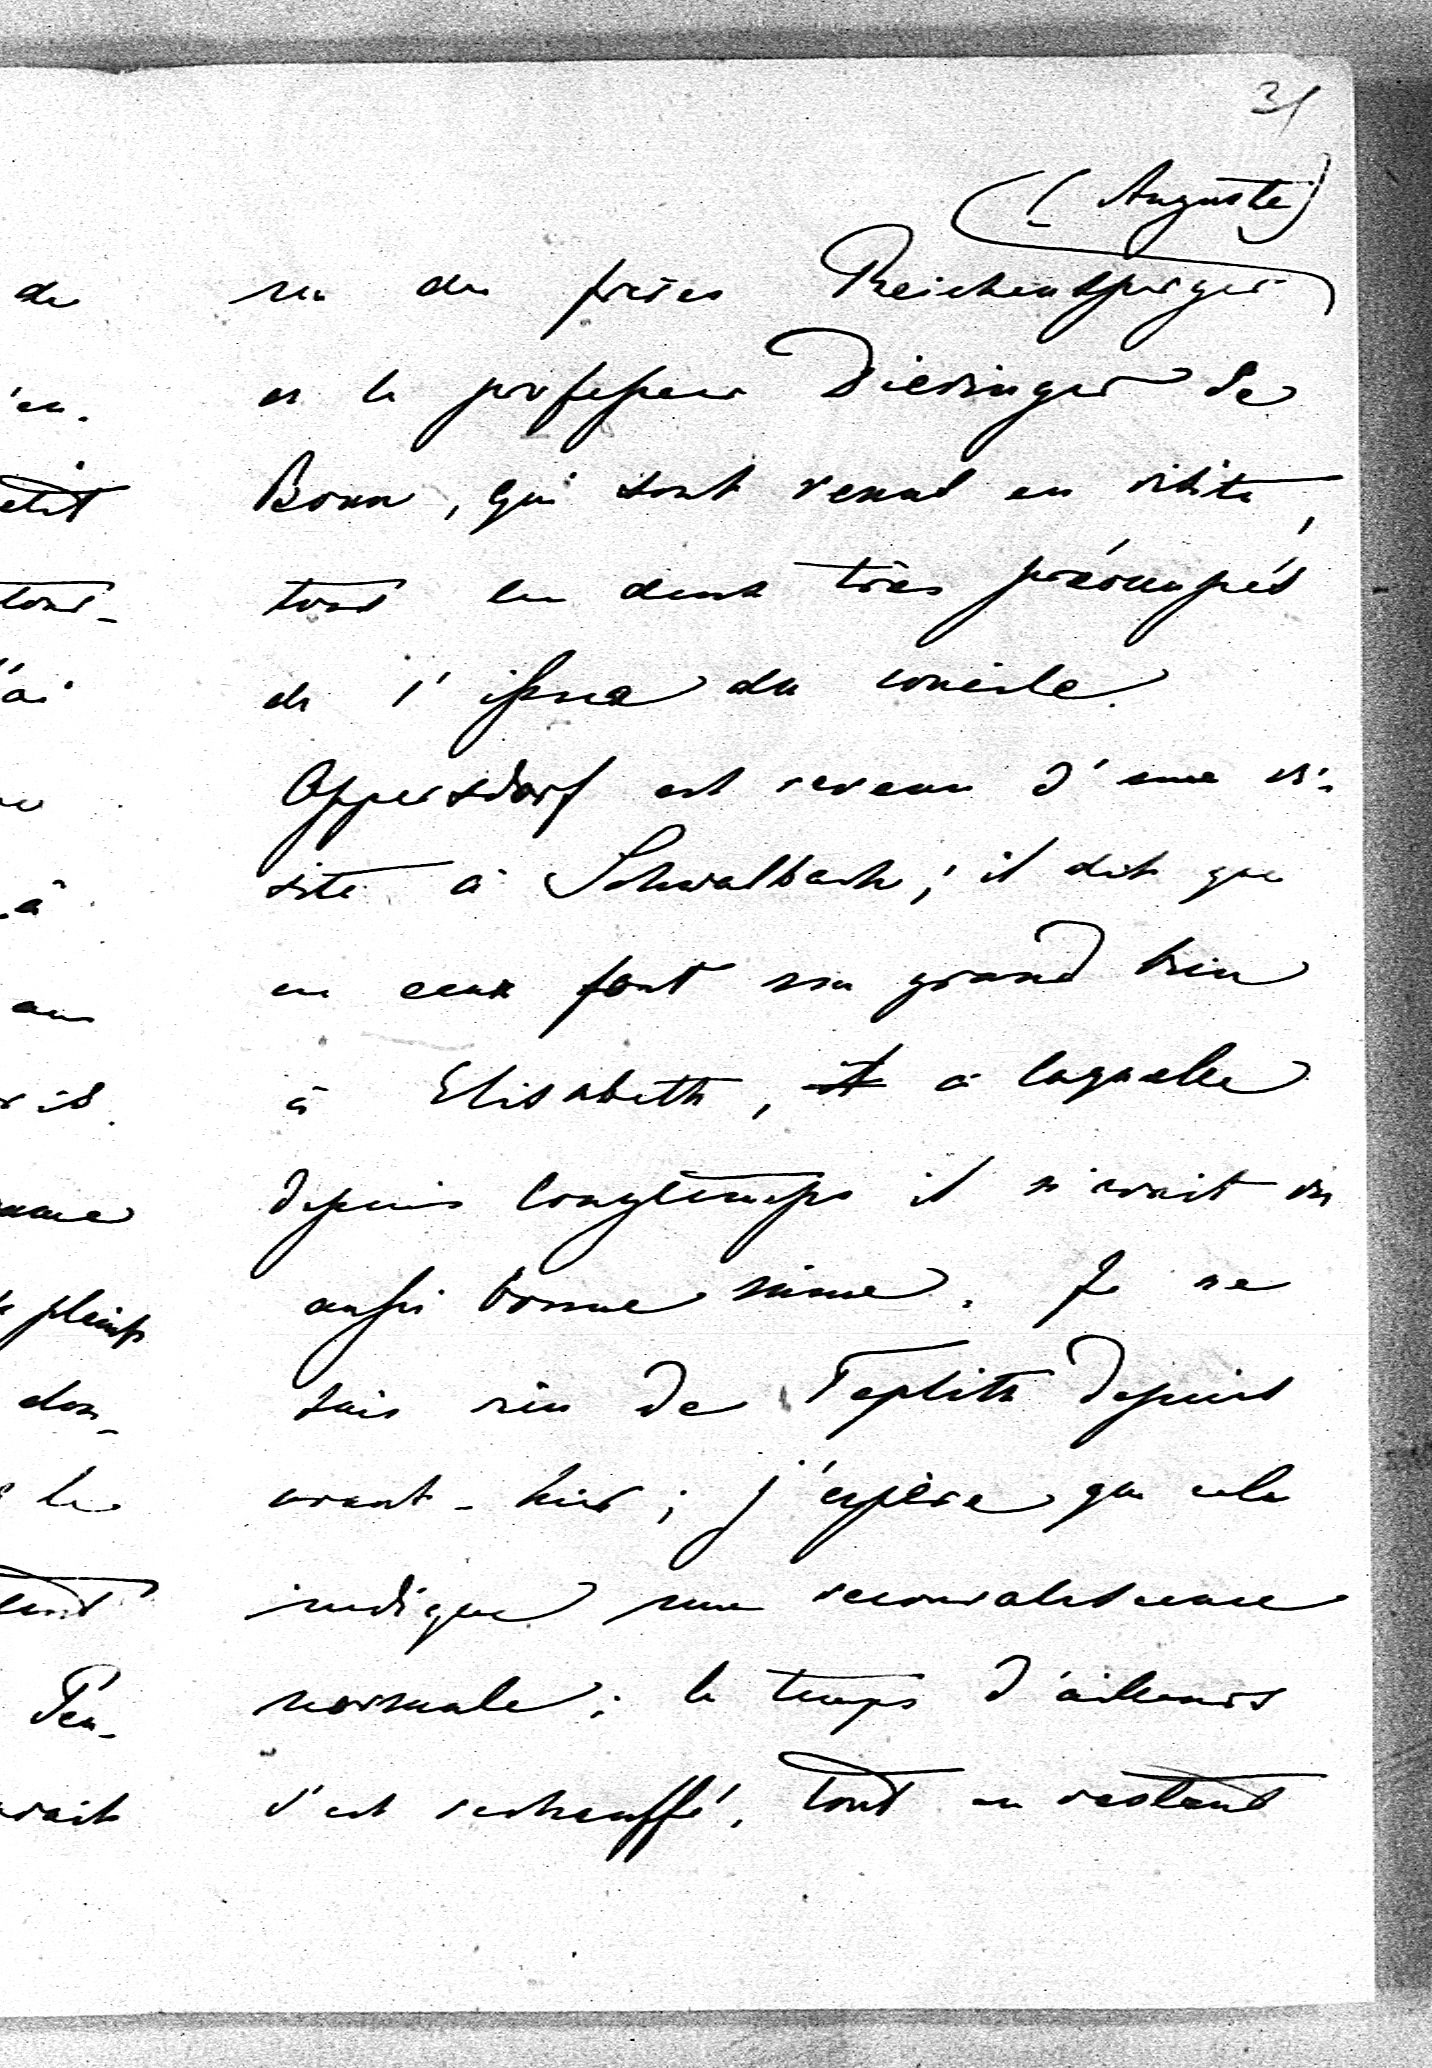 31
(Auguste)
un des frères Reichensperger
et le professeur Dieringer de
Bonn, qui sont venus en visite,
tous les deux très préoccupés
de l'issue du concile.
Oppersdorf est revenu d'une vi-
site à Schwalbach; il dit que
les eaux font un grand bien
à Elisabeth, à laquelle
depuis longtemps il n'avait vu
aussi bonne mine. Je ne
sais rien de Teplitz depuis
avant-hier; j'espère que cela
indique une reconvalescence
normale; le temps d'ailleurs
s'est rechauffé, tout en restant